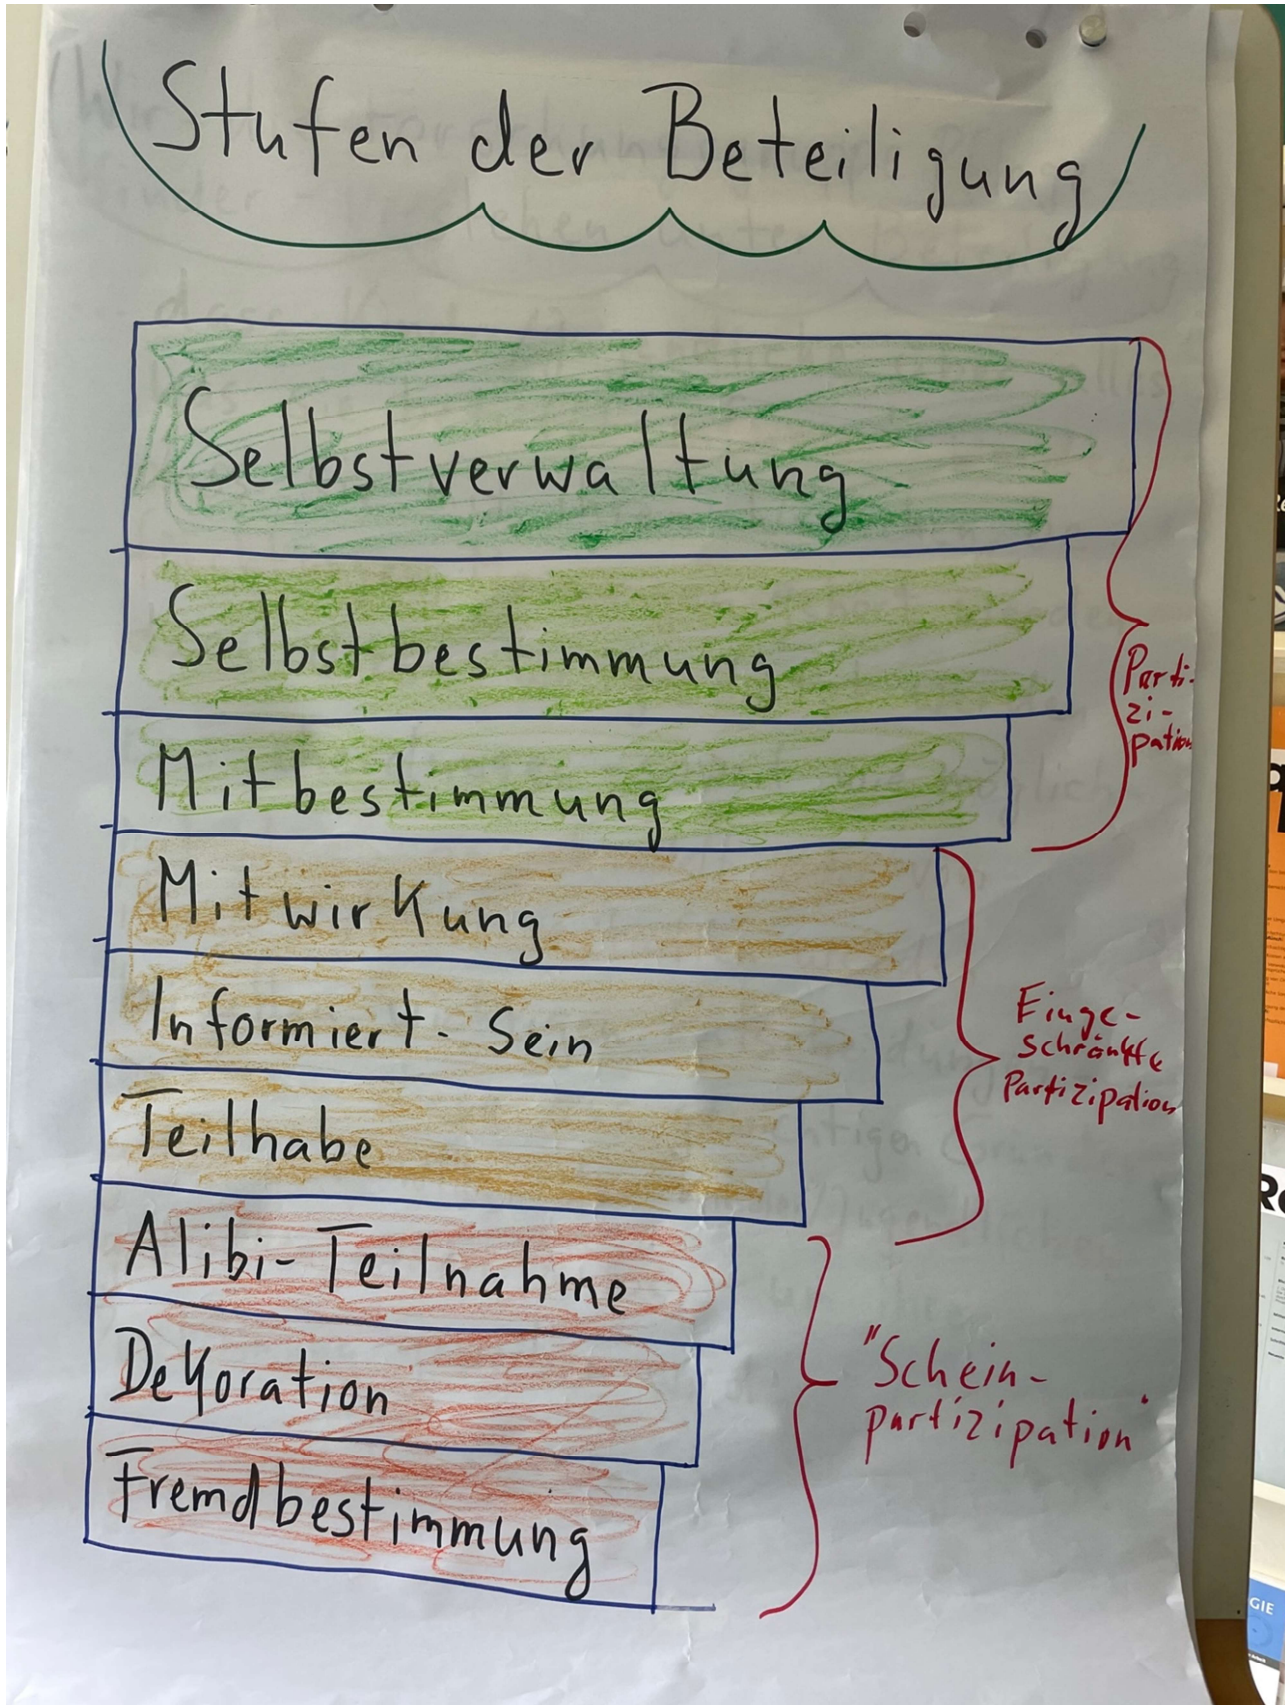 Stufen der Beteiligung
Selbstverwaltung
Selbstbestimmung
Mitbestimmung
Parti-
zi-
pation
Mitwirkung
Informiert-Sein
Teilhabe
Einge-
schränkte
Partizipation
Alibi-Teilnahme
Dekoration
Fremdbestimmung
"Schein-
partizipation"
GIE